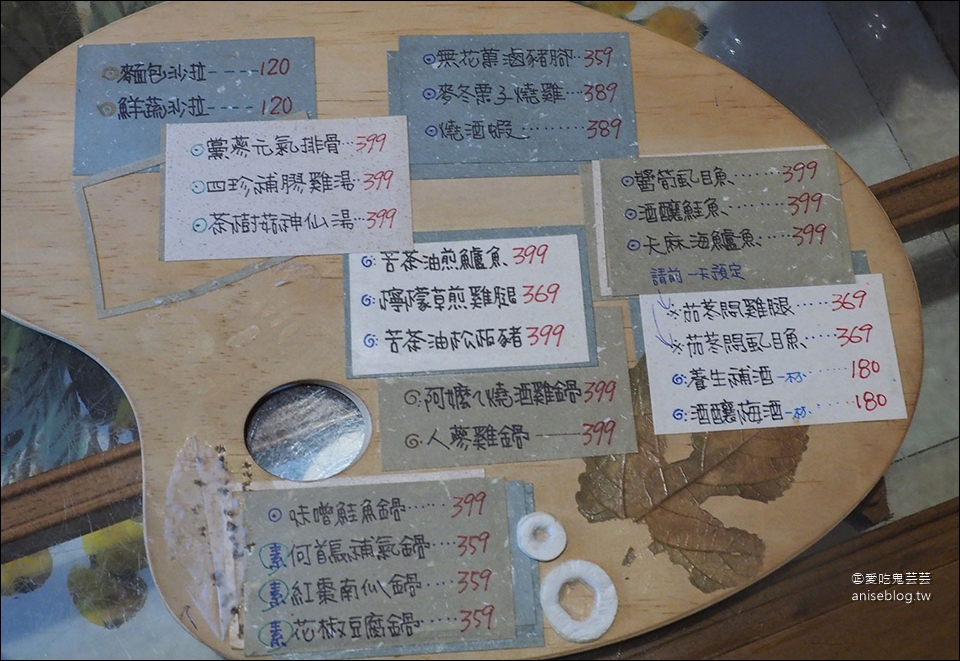 ⊙麵包沙拉----120
⊙鮮蔬沙拉----120
⊙黨蔘元氣排骨…399
⊙四珍補膠雞湯…399
⊙茶樹菇神仙湯…399
⊙無花菓滷豬腳…359
⊙麥冬栗子燒雞…389
⊙燒酒蝦………389
⊙醬筍虱目魚……399
⊙酒釀鮭魚……399
⊙天麻海鱸魚……399
請前一天預定
苦茶油煎鱸魚399
檸檬草煎雞腿369
苦茶油松阪豬399
※茄苳悶雞腿……369
※茄苳悶虱目魚……369
養生補酒一杯……180
酒釀梅酒一杯……180
阿嬤ㄟ燒酒雞鍋399
人蔘雞鍋——399
⊙味噌鮭魚鍋……399
素 何首烏補氣鍋……359
素 紅棗南仙鍋……359
素 花椒豆腐鍋……359
愛吃鬼芸芸
aniseblog.tw